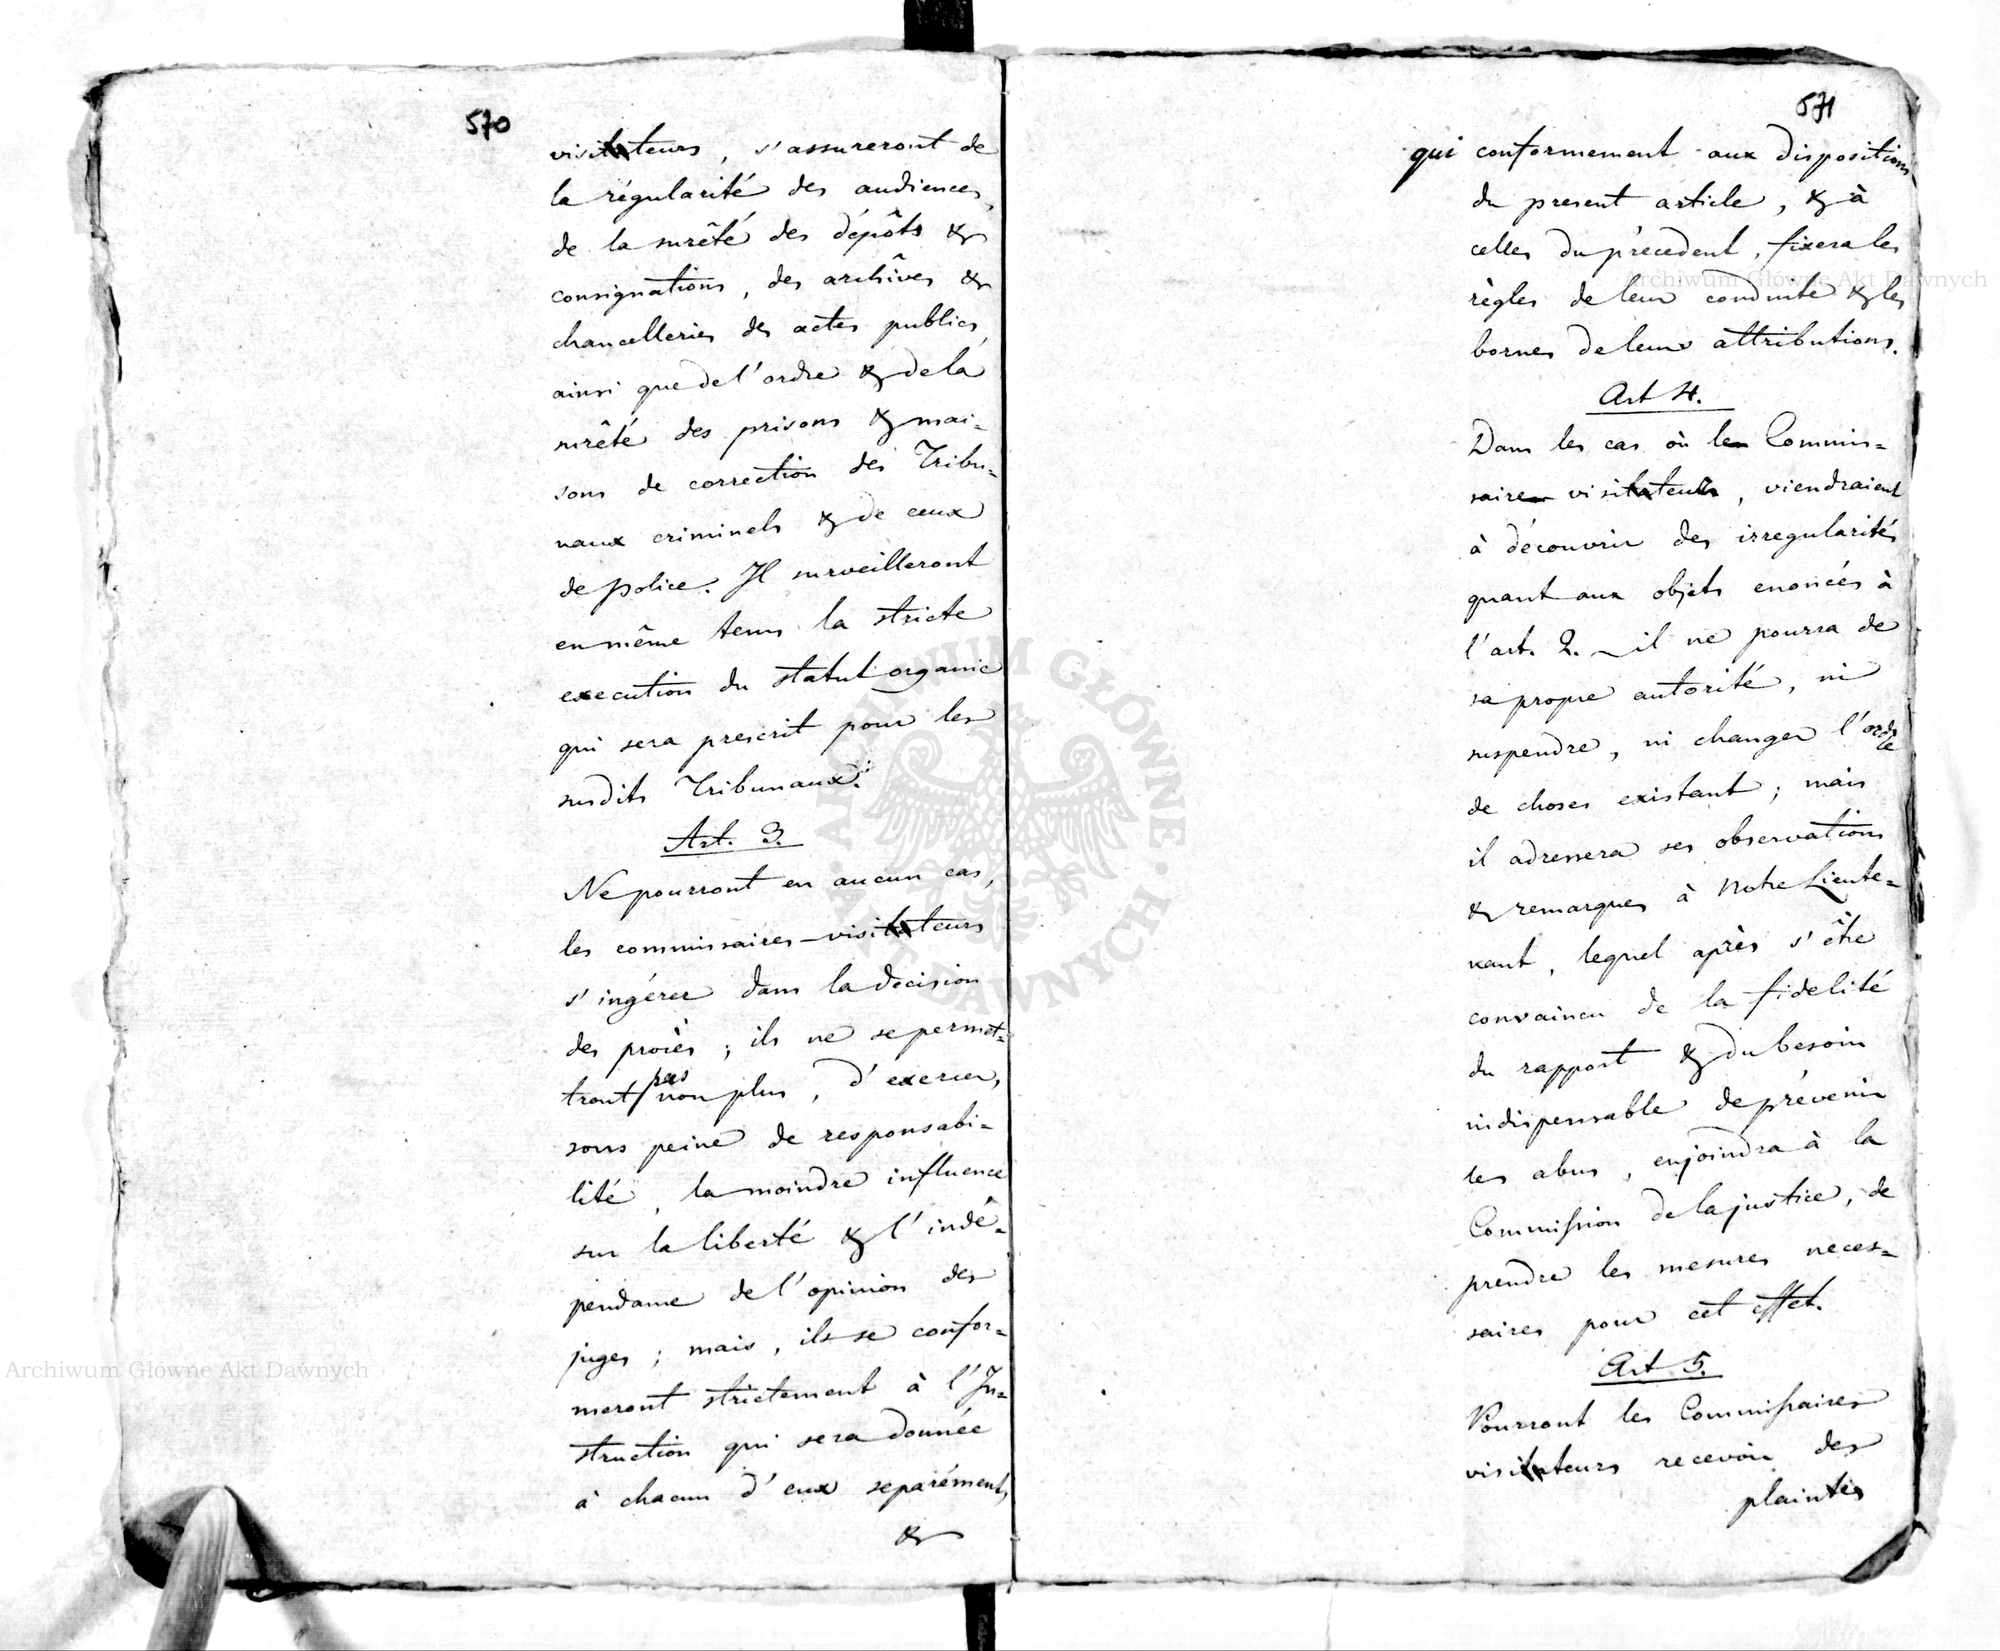 570
visitateurs, s'assureront de
la régularité des audiences,
de la surêté des dépôts &
consignations, des archîves &
chancelleries des actes publics,
ainsi que de l'ordre & de la
surêté des prisons & mai=
sons de correction des Tribu=
naux criminels & de ceux
de police. Il surveilleront
en même tems la stricte
execution du statut organic
qui sera prescrit pour les
susdits Tribunaux.
Art. 3.
Ne pourront en aucun cas,
les commissaires-visitateurs
s'ingérer dans la decision
des procès; ils ne se permet=
tront pas non plus, d'exercer,
sous peine de responsabi=
lité, la moindre influence
sur la liberté & l'indé=
pendance de l'opinion des
juges; mais, ils se confor=
meront strictement à l'In=
struction qui sera donnée
à chacun d'eux separément,
&
571
qui conformement aux dispositions
du present article, & à
celles du précedent, fixera les
règles de leur conduite & les
bornes de leurs attributions.
Art 4.
Dans les cas où le Commis=
saire visitateur, viendraient
à découvrir des irregularités
quant aux objets enoncés à
l'art. 2. il ne pourra de
sa propre autorité, ni
suspendre, ni changer l'ordre
de choses existant; mais
il adressera ses observations
& remarques à Notre Lieute=
nant, lequel après s'être
convaincu de la fidelité
du rapport & du besoin
indispensable de prévenir
les abus, enjoindra à la
Commission de la justice, de
prendre les mesures neces=
saires pour cet effet.
Art 5.
Pourront les Commissaires
visitateurs recevoir des
plaintes
Archiwum Główne Akt Dawnych
Archiwum Główne Akt Dawnych
ARCHIWUM GŁÓWNE · AKT DAWNYCH ·